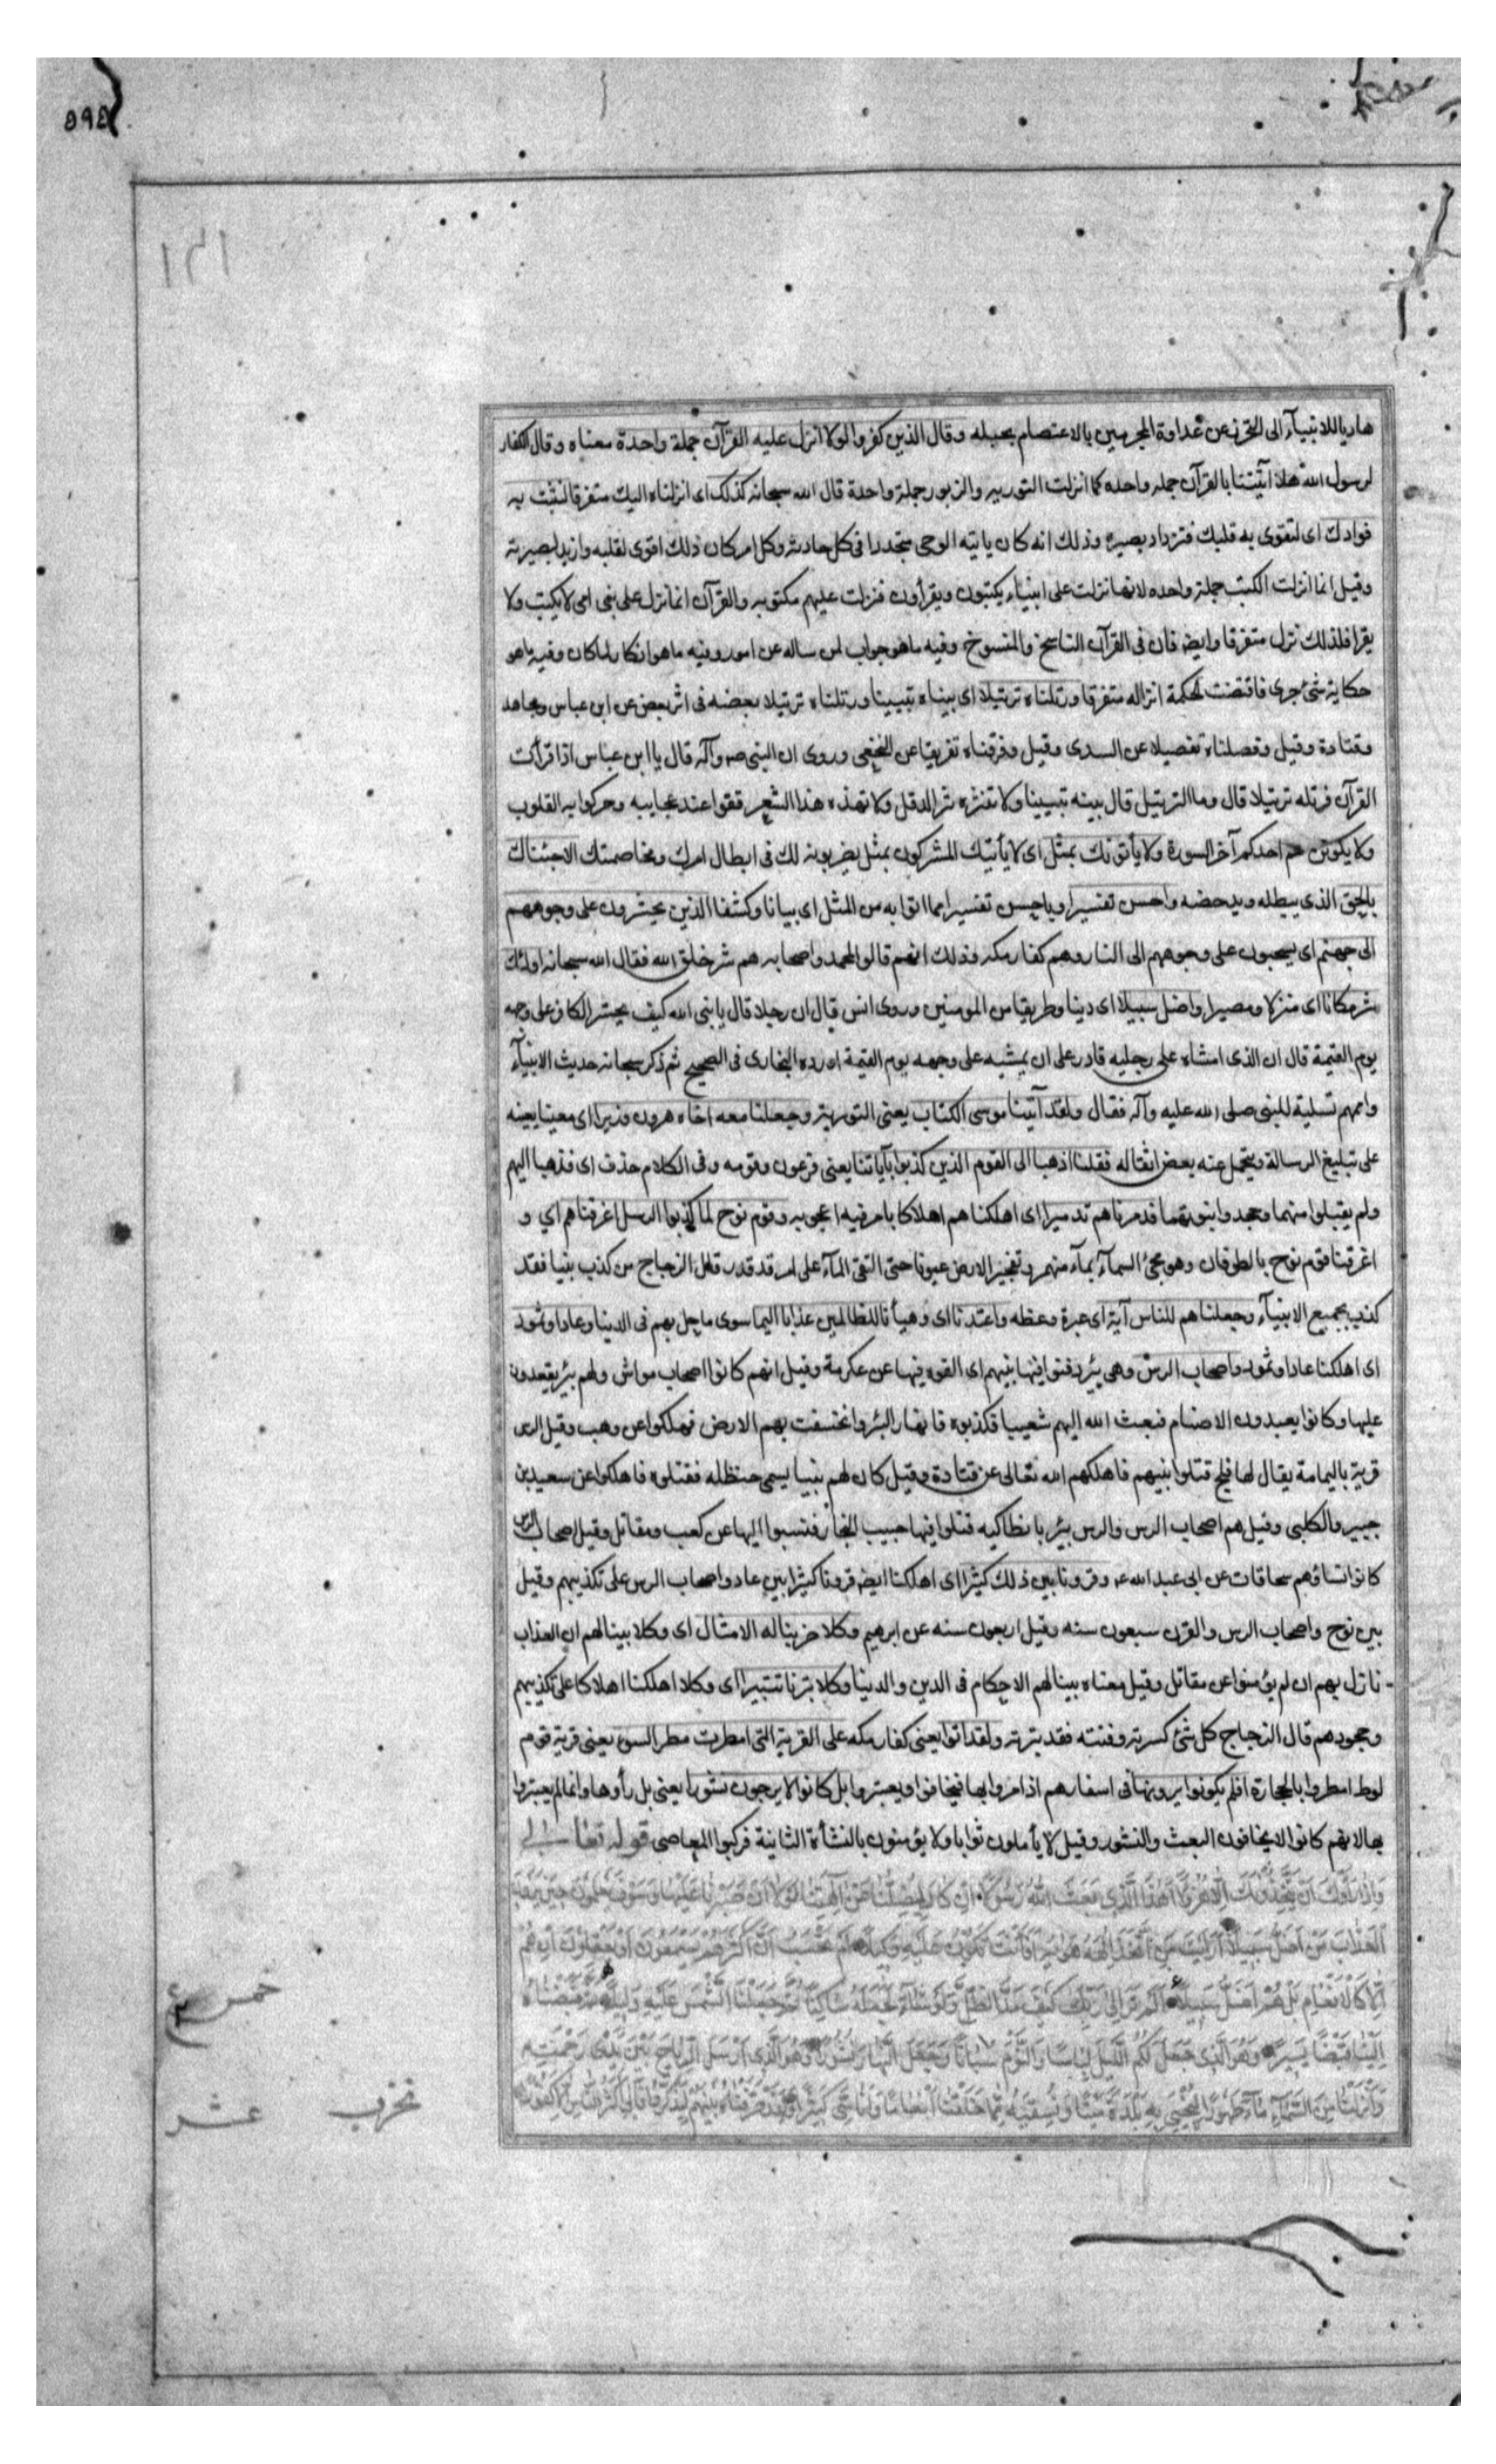 هاديا للانبيآء الى التحرز عن عداوة المجرمين بالاعتصام بحبله وقال الذين كفروا لولا انزل عليه القرآن جملة واحدة معناه وقال الكفار
لرسول الله هلا آتيتنا بالقرآن جمله واحده كما انزلت التوريه والزبور جملة واحدة قال الله سبحانه كذلك اى انزلناه اليك متفرقا لنثبت به
فوادك اى لتقوى به قلبك فتزداد بصيره وذلك انه كان ياتيه الوحى متجددا فى كل حادثه وكل امر كان ذلك اقوى لقلبه وازيد لبصيرته
وقيل انما انزلت الكتب جملة واحده لانها نزلت على انبياء يكتبون ويقرأون فنزلت عليهم مكتوبه والقرآن انما نزل على نبى امى لا يكتب ولا
يقرا فلذلك نزل متفرقا وايض فان فى القرآن الناسخ والمنسوخ وفيه ما هو جواب لمن ساله عن امور وفيه ما هو انكار لما كان وفيه ما هو
حكاية شئ جرى فاقتضت الحكمة انزاله متفرقا ورتلناه ترتيلا اى بيناه تبيينا ورتلناه ترتيلا بعضه فى اثر بعض عن ابن عباس ومجاهد
وقتادة وقيل وفصلناه تفصيلا عن السدى وقيل وفرقناه تفريقا عن النخعى وروى ان النبى صه وآله قال يا ابن عباس اذا قرأت
القرآن فرتله ترتيلا قال وما الترتيل قال بينه تبيينا ولا تنثره نثر الدقل ولا تهذه هذا الشعر فقوا عند عجايبه وحركوا به القلوب
ولا يكونن هم احدكم آخر السورة ولا يأتونك بمثل اى لا يأتيك المشركون بمثل يضربونه لك فى ابطال امرك ومخاصمتك الا جئناك
بالحق الذى يبطله ويدحضه واحسن تفسيرا وباحسن تفسيرا مما اتوا به من المثل اى بيانا وكشفا الذين يحشرون على وجوههم
الى جهنم اى يسحبون على وجوههم الى النار وهم كفار مكه وذلك انهم قالوا لمحمد واصحابه هم شر خلق الله فقال الله سبحانه اولئك
شر مكانا اى منزلا ومصيرا واضل سبيلا اى دينا وطريقا من المومنين وروى انس قال ان رجلا قال يا نبى الله كيف يحشر الكافر على وجهه
يوم القيمة قال ان الذى امشاه على رجليه قادر على ان يمشيه على وجهه يوم القيمة اورده البخارى فى الصحيح ثم ذكر سبحانه حديث الانبيآء
واممهم تسلية للنبى صلى الله عليه وآله فقال ولقد آتينا موسى الكتاب يعنى التورية وجعلنا معه اخاه هرون وزيرا اى معينا يعينه
على تبليغ الرسالة ويتحمل عنه بعض اثقاله فقلنا اذهبا الى القوم الذين كذبوا بآياتنا يعنى فرعون وقومه وفى الكلام حذف اى فذهبا اليهم
ولم يقبلوا منهما وجحدوا نبوتهما فدمرناهم تدميرا اى اهلكناهم اهلاكا بامر فيه اعجوبه وقوم نوح لما كذبوا الرسل اغرقناهم اي و
اغرقنا قوم نوح بالطوفان وهو مجئ السمآء بمآء منهمر وتفجير الارض عيونا حتى التقى المآء على امر قد قدر قال الزجاج من كذب بنبيا فقد
كذب بجميع الانبيآء وجعلناهم للناس آية اى عبرة وعظه واعتدنا اى وهيأنا للظالمين عذابا اليما سوى ما حل بهم فى الدنيا وعادا وثمود
اى اهلكنا عادا وثمود واصحاب الرس وهى بئر دفنوا فيها نبيهم اى القوه فيها عن عكرمة وقيل انهم كانوا اصحاب مواش ولهم بئر يقعدون
عليها وكانوا يعبدون الاصنام فبعث الله اليهم شعيبا فكذبوه فانهار البئر وانخسفت بهم الارض فهلكوا عن وهب وقيل الرس
قرية باليمامة يقال لها فلج قتلوا نبيهم فاهلكهم الله تعالى عن قتادة وقيل كان لهم نبيا يسمى حنظله فقتلوه فاهلكوا عن سعيد بن
جبير والكلبى وقيل هم اصحاب الرس والرس بئر بانطاكيه قتلوا فيها حبيب النجار فنسبوا اليها عن كعب ومقاتل وقيل اصحاب الرس
كانوا نساؤهم سحاقات عن ابى عبد الله عه وقرونا بين ذلك كثيرا اى اهلكنا ايض قرونا كثيرا بين عاد واصحاب الرس على تكذيبهم وقيل
بين نوح واصحاب الرس والقرن سبعون سنه وقيل اربعون سنه عن ابرهيم وكلا ضربنا له الامثال اى وكلا بينا لهم ان العذاب
نازل بهم ان لم يؤمنوا عن مقاتل وقيل معناه بينا لهم الاحكام فى الدين والدنيا وكلا تبرنا تتبيرا اى وكلا اهلكنا اهلاكا على تكذيبهم
وجحودهم قال الزجاج كل شئ كسرته وفتته فقد تبرته ولقد اتوا يعنى كفار مكه على القرية التى امطرت مطر السوء يعنى قرية قوم
لوط امطروا بالحجارة افلم يكونوا يرونها فى اسفارهم اذا مروا بها فيخافوا ويعتبروا بل كانوا لا يرجون نشورا يعنى بل رأوها وانما لم يعتبروا
بها لانهم كانوا لا يخافون البعث والنشور وقيل لا يأملون ثوابا ولا يؤمنون بالنشأة الثانية فركبوا المعاصى قوله تعالى
وَإِذَا رَأَوْكَ اَنْ يَتَّخِذُونَكَ اِلَّا هُزُوًا اَهٰذَا الَّذِي بَعَثَ اللهُ رَسُولًا اِنْ كَادَ لَيُضِلُّنَا عَنْ آلِهَتِنَا لَوْلَا اَنْ صَبَرْنَا عَلَيْهَا وَسَوْفَ يَعْلَمُونَ حِينَ يَرَوْنَ
الْعَذَابَ مَنْ اَضَلُّ سَبِيلًا اَرَاَيْتَ مَنِ اتَّخَذَ اِلٰهَهُ هَوٰيهُ اَفَاَنْتَ تَكُونُ عَلَيْهِ وَكِيلًا اَمْ تَحْسَبُ اَنَّ اَكْثَرَهُمْ يَسْمَعُونَ اَوْ يَعْقِلُونَ اِنْ هُمْ
اِلَّا كَالْاَنْعَامِ بَلْ هُمْ اَضَلُّ سَبِيلًا اَلَمْ تَرَ اِلٰى رَبِّكَ كَيْفَ مَدَّ الظِّلَّ وَلَوْ شَآءَ لَجَعَلَهُ سَاكِنًا ثُمَّ جَعَلْنَا الشَّمْسَ عَلَيْهِ دَلِيلًا ثُمَّ قَبَضْنَاهُ
اِلَيْنَا قَبْضًا يَسِيرًا وَهُوَ الَّذِي جَعَلَ لَكُمُ اللَّيْلَ لِبَاسًا وَالنَّوْمَ سُبَاتًا وَجَعَلَ النَّهَارَ نُشُورًا وَهُوَ الَّذِي اَرْسَلَ الرِّيَاحَ بَيْنَ يَدَيْ رَحْمَتِهِ
وَاَنْزَلْنَا مِنَ السَّمَآءِ مَآءً طَهُورًا لِنُحْيِيَ بِهِ بَلْدَةً مَيْتًا وَنُسْقِيَهُ مِمَّا خَلَقْنَا اَنْعَامًا وَاَنَاسِيَّ كَثِيرًا وَلَقَدْ صَرَّفْنَاهُ بَيْنَهُمْ لِيَذَّكَّرُوا فَاَبٰى اَكْثَرُ النَّاسِ اِلَّا كُفُورًا
خمس
عشر